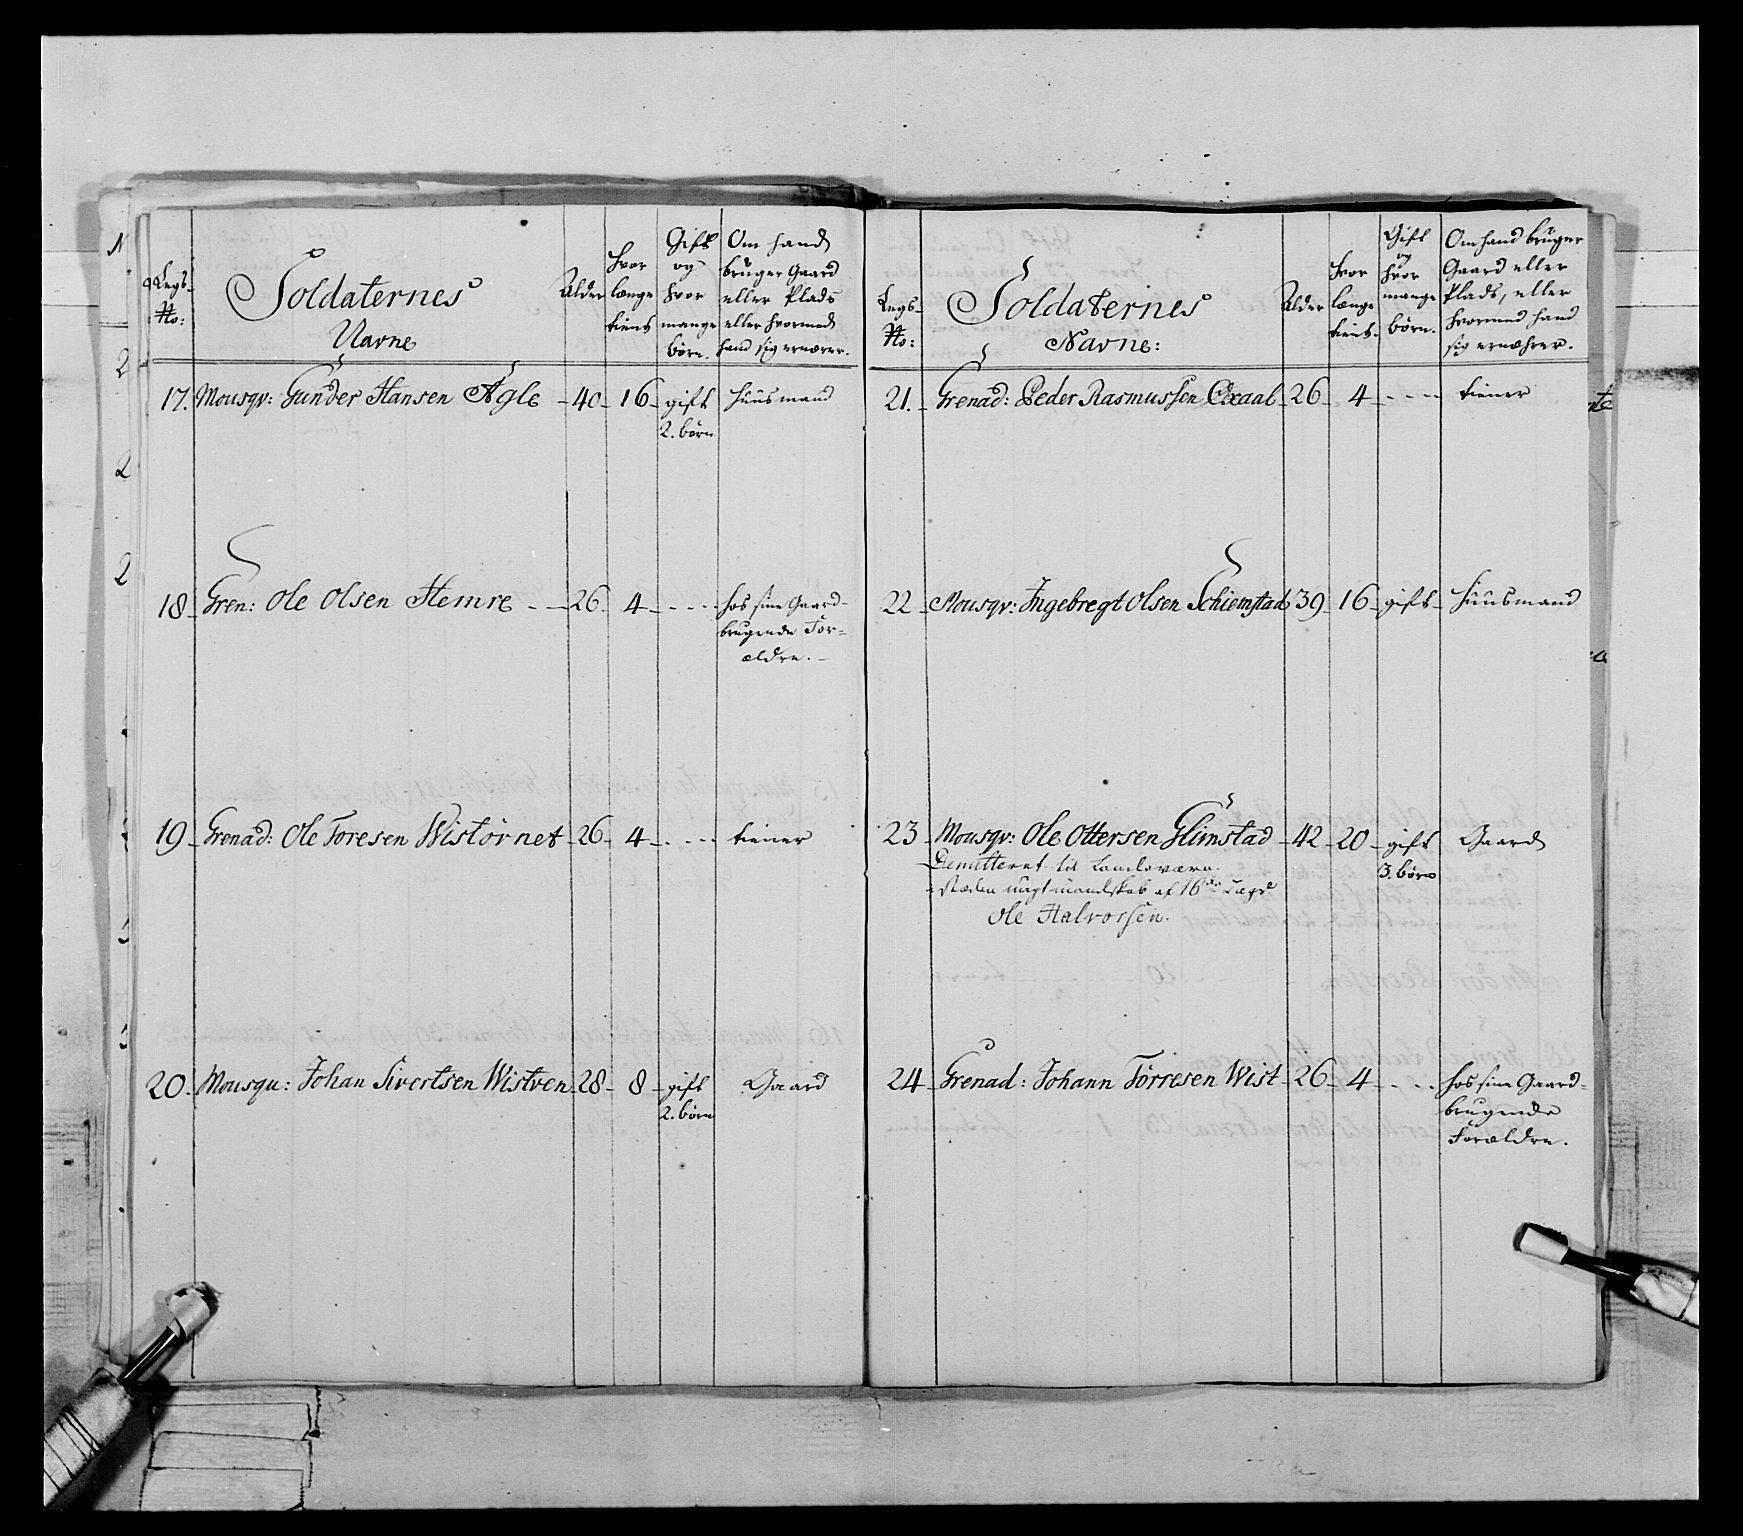 Legs No:
Soldaternes Navne
Alder
hvor længe tient
Gift og hvor mange børn.
Om hand bruger Gaard eller Plads eller hvormed hand sig ernærer.
17. Mousqv: Gunder Hansen Agle 40 16 gift Huusmand
2. børn
18 Gren: Ole Olsen Hemre 26 4 hos sine Gaard-
brugende For-
ældre.
19 Grenad: Ole Toresen Wistørnet 26 4 tiener
20. Mousqu: Johan Sivertsen Wistven 28 8 gift Gaard
2. børn
Legs No:
Soldaternes Navne:
Alder
hvor længe tient
Gift og hvor mange børn.
Om hand bruger Gaard eller Plads, eller hvormed hand sig ernæhrer.
21. Grenad: Peder Rasmussen Oxaal 26 4 tiener
22 Mousqv: Ingebregt Olsen Schiemstad 39 16 gift Huusmand
23 Mousqv: Ole Ottersen Glimstad 42 20 gift Gaard
Demitteret til Landeværn. 3. børn
istæden ungt mandskab af 16de Lægd
Ole Halvorsen.
24 Grenad: Johann Torresen Wist 26 4 hos sine Gaard-
brugende
Forældre.